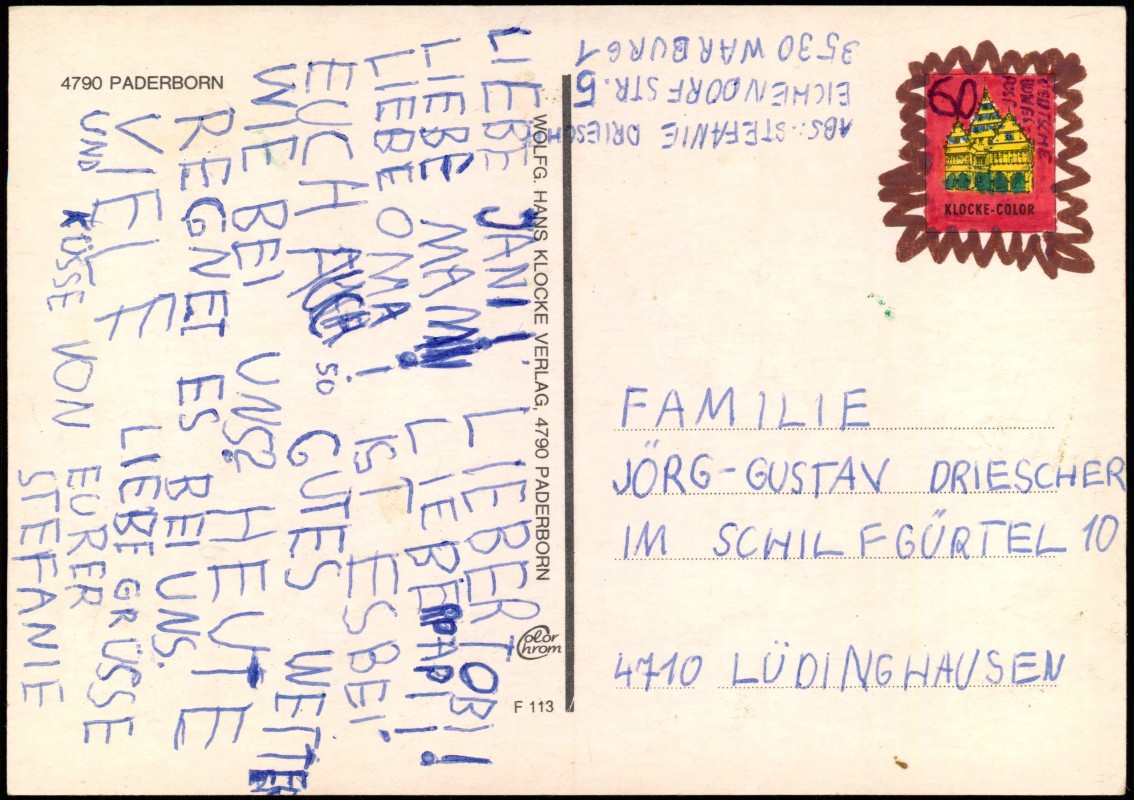 4790 PADERBORN
LIEBE JANI! LIEBER TOBI!
LIEBE MAMI! LIEBER PAPI!
LIEBE OMA! IST ES BEI
EUCH AUCH SO GUTES WETTER
WIE BEI UNS? HEUTE
REGNET ES BEI UNS.
VIELE LIEBE GRÜSSE
UND KÜSSE VON EURER
STEFANIE
WOLFG. HANS KLOCKE VERLAG, 4790 PADERBORN
Color Chrom
F 113
ABS.: STEFANIE DRIESCH
EICHENDORFSTR. 5
3530 WARBURG 1
60
DEUTSCHE
BUNDES
POST
KLOCKE-COLOR
FAMILIE
JÖRG-GUSTAV DRIESCHER
IM SCHILFGÜRTEL 10
4710 LÜDINGHAUSEN